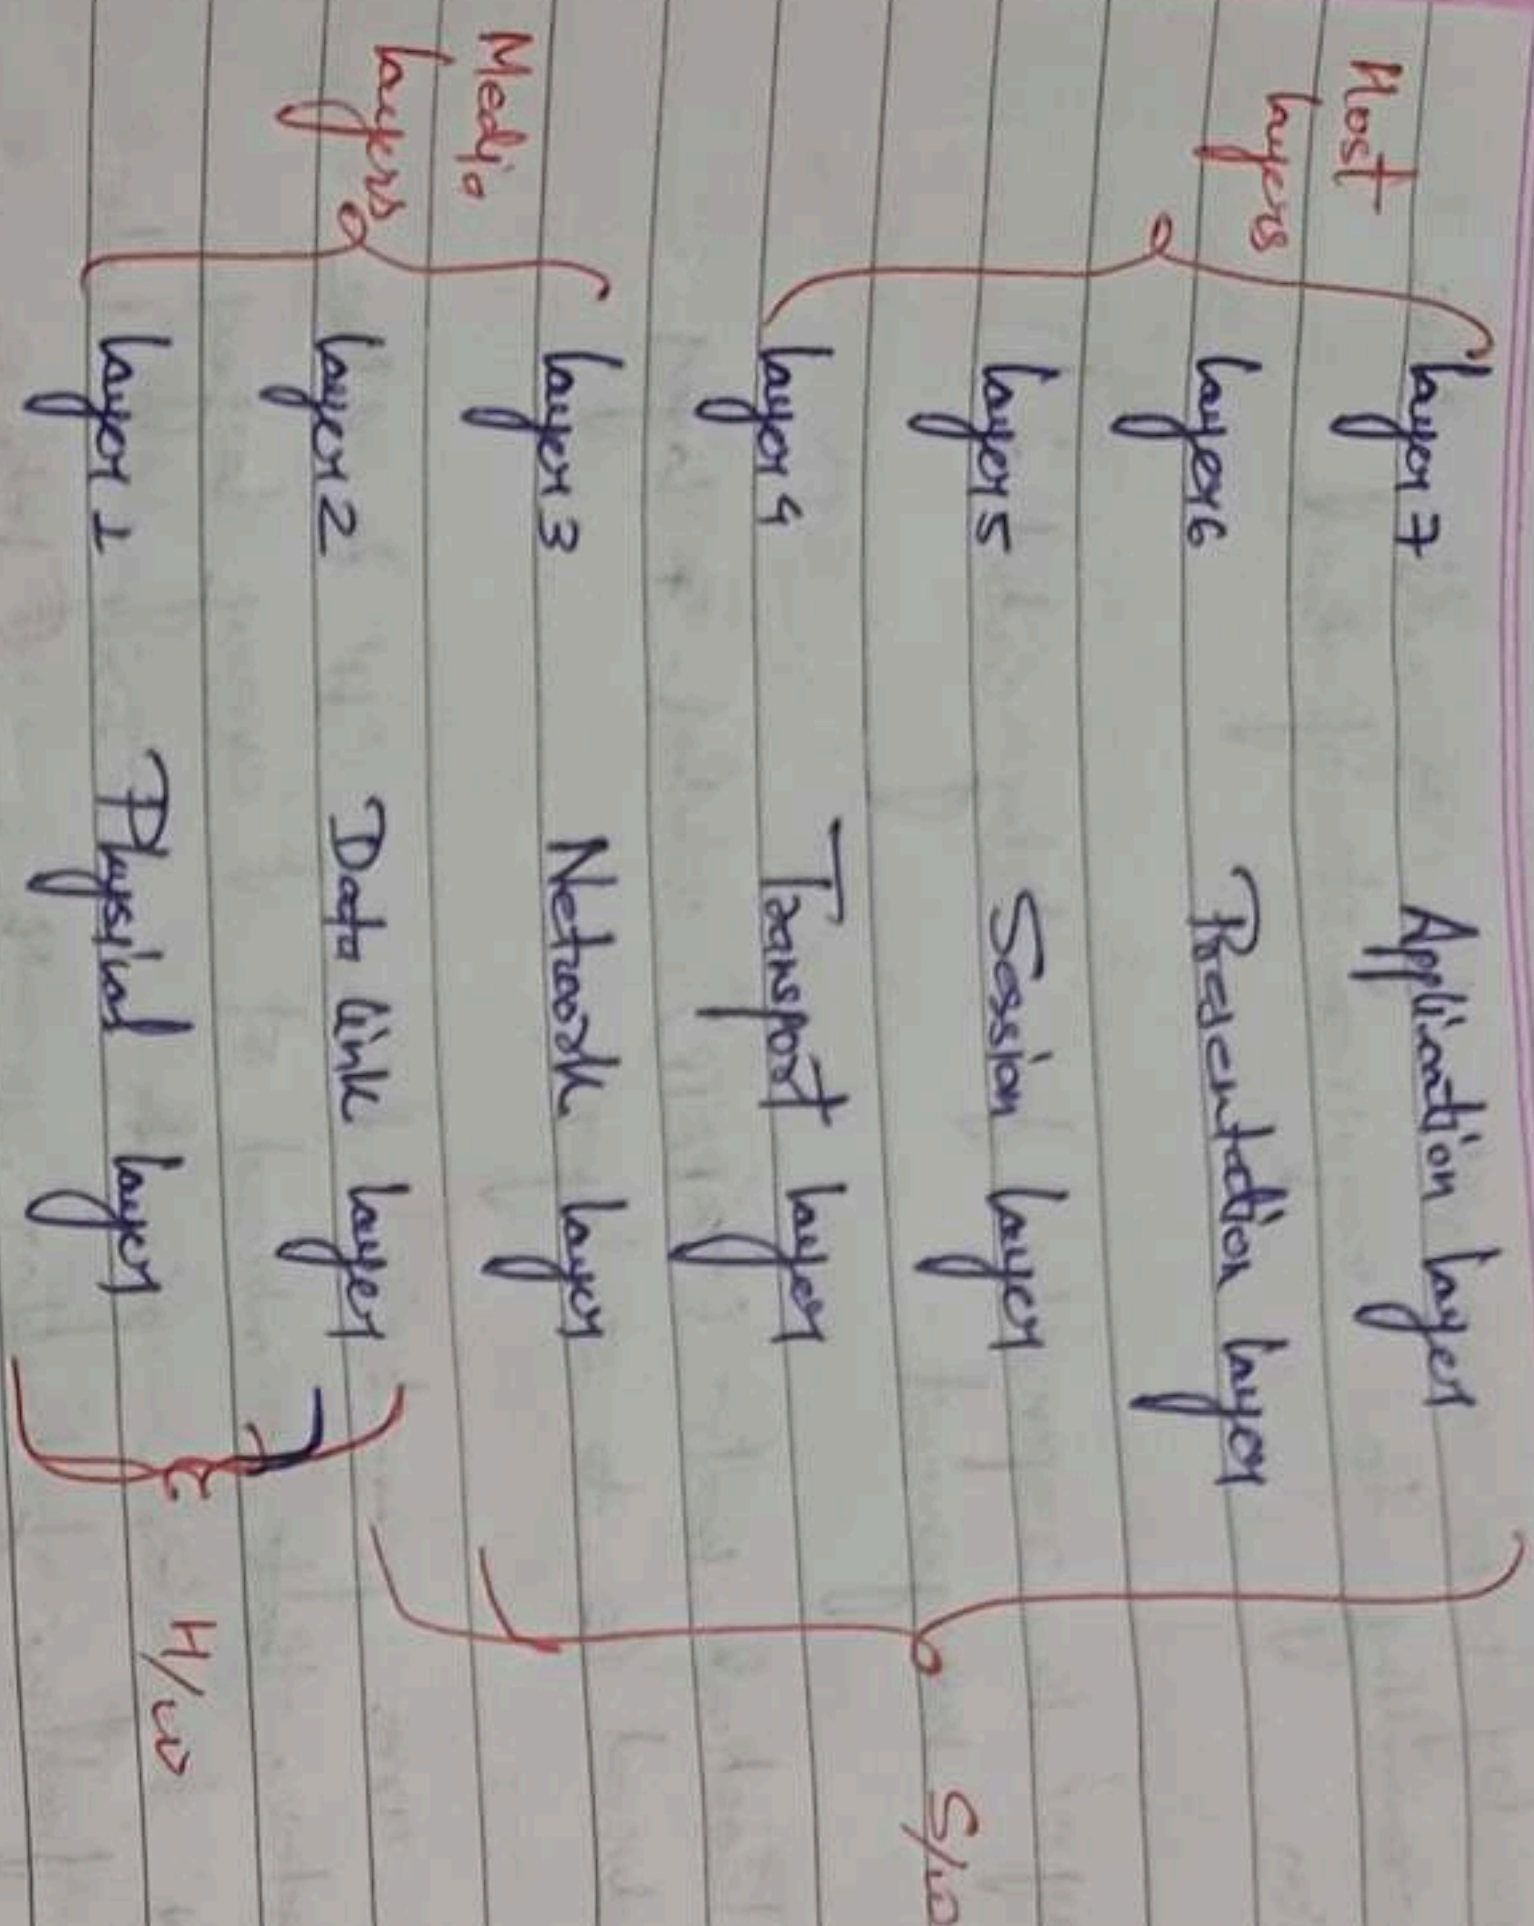 Host
layers
Layer 7 Application layer
Layer 6 Presentation layer
Layer 5 Session layer
S/w
Layer 4 Transport layer
Media
layers
Layer 3 Network layer
Layer 2 Data link layer
H/w
Layer 1 Physical layer